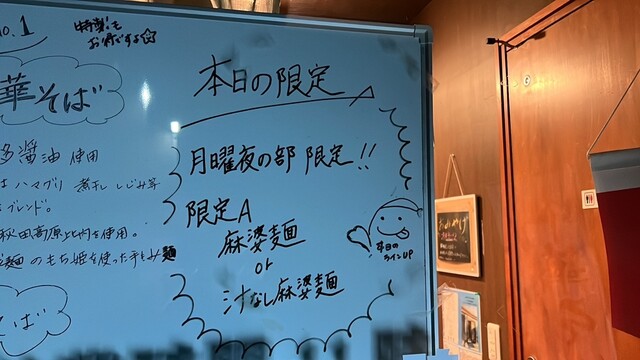 No.1
特製もお得ですよ
華そば
醤油 使用
ハマグリ 煮干し しじみ等
ブレンド。
秋田高原比内を使用。
麺 のもち姫を使った手もみ麺
そば
本日の限定
月曜夜の部 限定!!
限定A
麻婆麺
or
汁なし麻婆麺
本日の
ラインUP